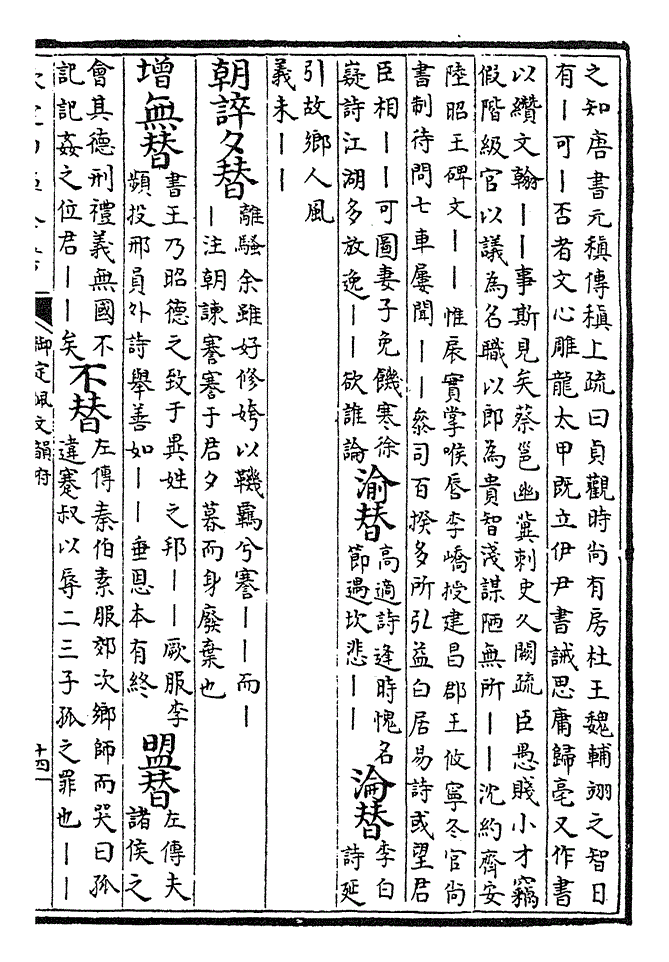 之知唐書元稹傳稹上疏曰貞觀時尚有房杜王魏輔翊之智日
有丨可丨否者文心雕龍太甲既立伊尹書誡思庸歸亳又作書
以纘文翰丨丨事斯見矣蔡邕幽冀刺史久闕疏臣愚賤小才竊
假階級官以議為名職以郎為貴智淺謀陋無所丨丨沈約齊安
陸昭王碑文丨丨惟扆實掌喉脣李嶠授建昌郡王攸寧冬官尚
書制待問七車屢聞丨丨叅司百揆多所引益白居易詩或望君
臣相丨丨可圖妻子免饑寒徐
嶷詩江湖多放逸丨丨欲誰論
渝替
高適詩逢時愧名
節遇坎悲丨丨
淪替
李白
詩延
引故鄉人風
義未丨丨
朝誶夕替
離騷余雖好修姱以鞿羈兮謇丨丨而丨
丨注朝諫謇謇于君夕暮而身廢棄也
增無替
書王乃昭德之致于異姓之邦丨丨厥服李
頻投邢員外詩舉善如丨丨垂恩本有終
盟替
左傳夫
諸侯之
會其德刑禮義無國不
記記姦之位君丨丨矣
不替
左傳秦伯素服郊次鄉師而哭曰孤
違蹇叔以辱二三子孤之罪也丨丨
御定佩文韻府
十四